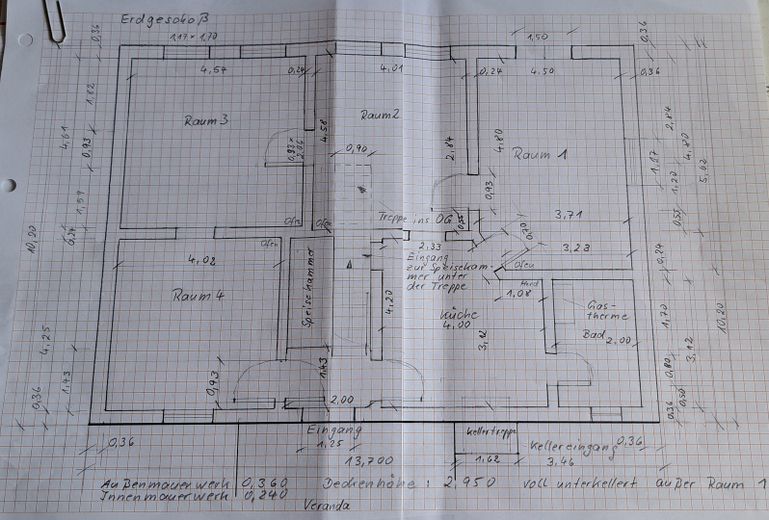 Erdgeschoß
1,17 x 1,70
1,50
0,36
0,36
4,57
0,24
4,01
0,24
4,50
0,36
1,82
4,61
0,93
1,59
0,24
10,20
Raum 3
0,93 x
2,06
4,58
Raum 2
0,90
2,84
4,80
Raum 1
0,93
2,84
1,07
1,20
4,80
5,02
0,55
Ofen
Ofen
Treppe ins OG
0,55
3,71
2,33
3,23
0,24
Ofen
4,02
Eingang
zur Speisekam-
mer unter
der Treppe
Ofen
Herd
1,08
Raum 4
Speisekammer
4,20
Küche
4,00
3,12
Gas-
therme
Bad 2,00
1,70
3,12
10,20
0,80
0,50
0,36
4,25
1,43
0,36
0,93
1,43
2,00
Eingang
1,25
Kellertreppe
Kellereingang
0,36
0,36
13,700
1,62
3,46
Außenmauerwerk 0,360 Deckenhöhe: 2,950 voll unterkellert außer Raum 1
Innenmauerwerk 0,240
Veranda